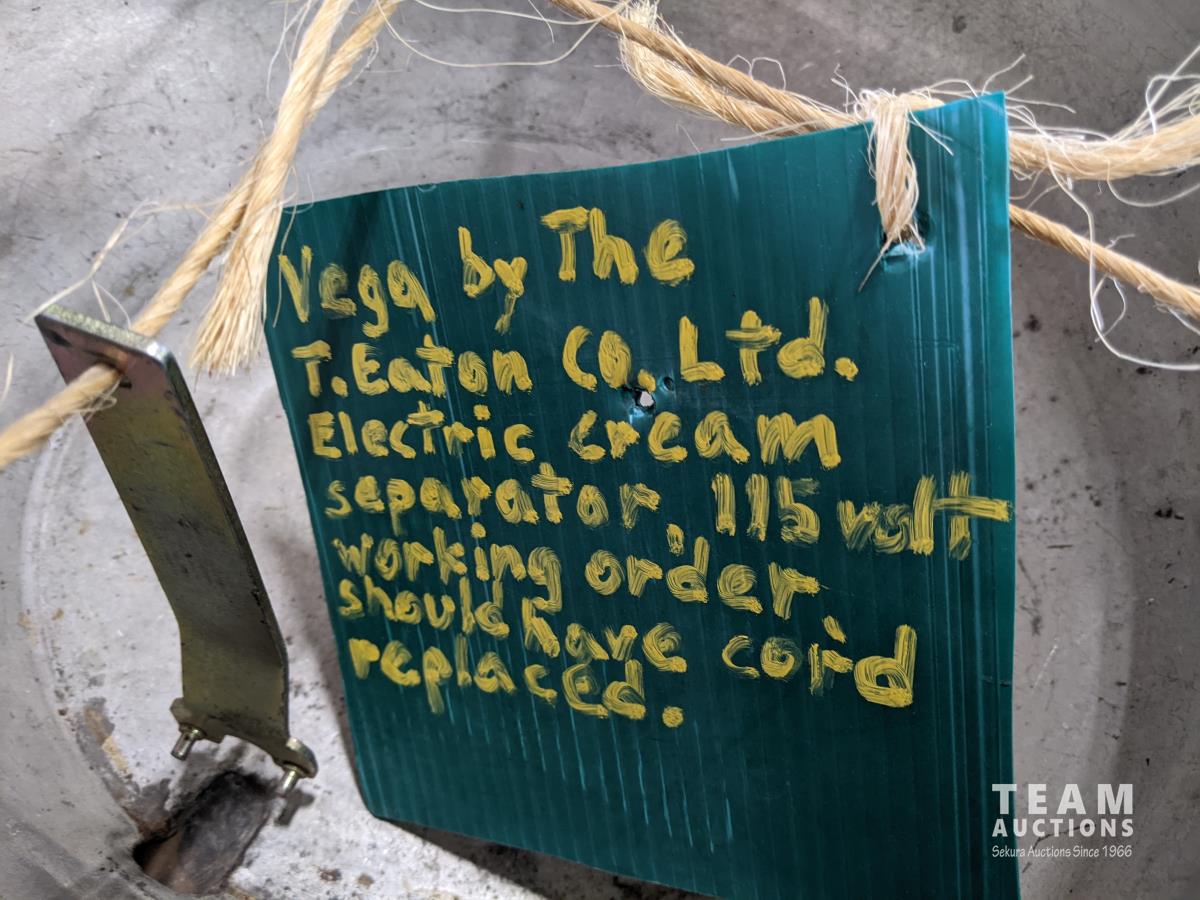 Vega by The
T. Eaton Co. Ltd.
Electric cream
separator. 115 volt
working order.
should have cord
replaced.
TEAM
AUCTIONS
Sekura Auctions Since 1966